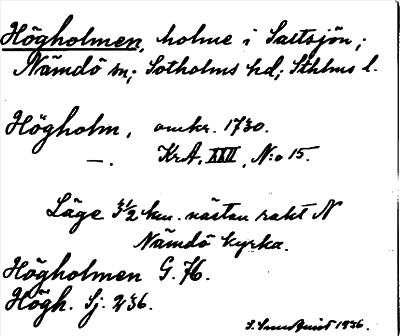 Högholmen, holme i Saltsjön;
Nämdö sn; Sotholms hd; Sthlms l.
Högholm, omkr. 1730.
—. KrA, XXII, N:o 15.
Läge 3½ km. nästan rakt N
Nämdö kyrka.
Högholmen G. 76.
Högh. Sj. 236.
1936.